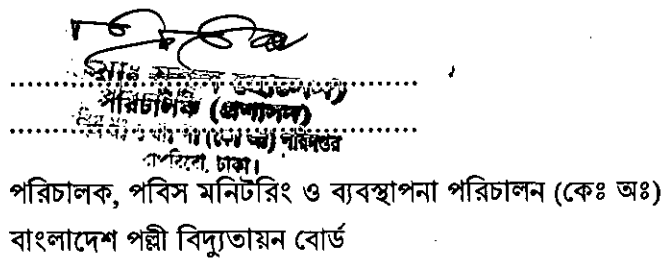 পরিচালক (প্রশাসন)
(কেঃ অঃ) পরিদপ্তর
বাপবিবো, ঢাকা।
পরিচালক, পবিস মনিটরিং ও ব্যবস্থাপনা পরিচালন (কেঃ অঃ)
বাংলাদেশ পল্লী বিদ্যুতায়ন বোর্ড